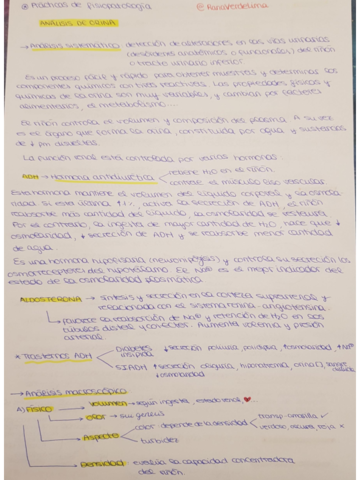 @ Prácticas de fisiopatología
@Runaverdeluna
ANÁLISIS DE ORINA
→ Análisis sistemático: detección de alteraciones en las vías urinarias
(desórdenes anatómicos o funcionales) del riñón
o tracto urinario inferior
Es un proceso fácil y rápido para obtener muestras y determinar sus
componentes químicos con tiras reactivas. Las propiedades físicas y
químicas de la orina son muy variables, y cambian por factores
alimentarios, el metabolismo....
El riñón controla el volumen y composición del plasma. A su vez
es el órgano que forma la orina, constituida por agua y sustancias
de ↓ pm disueltas.
La función renal está controlada por varias hormonas
ADH → Hormona antidiurética
retiene H2O en el riñón.
contrae el músculo liso vascular
Esta hormona mantiene el volumen del líquido corporal y la osmola
ridad. Si esta última ↑1%, activa la secreción de ADH, el riñón
reabsorbe más cantidad del líquido, la osmolaridad se restaura.
Por el contrario, la ingesta de mayor cantidad de H2O, hace que ↓
osmolaridad, ↓ secreción de ADH y se reabsorbe menor cantidad
de agua.
Es una hormona hipofisaria (neurohipófisis) y controla su secreción los
osmorreceptores del hipotálamo. El Na⊕ es el mejor indicador del
estado de la osmolaridad plasmática.
ALDOSTERONA → síntesis y secreción en la corteza suprarrenal y
relacionada con el sistema renina - angiotensina.
favorece la reabsorción de Na⊕ y retención de H2O en los
túbulos distales y colector. Aumenta volumen y presión
arterial.
* Trastornos ADH
Diabetes
insípida
↓ secreción poliuria, polidipsia, ↑osmolaridad ↑Na⊕
SIADH ↑ secreción oliguria, hiponatremia,
↓ osmolaridad
→ Análisis macroscópico
A) FÍSICO
Volumen → según ingesta, estado renal, ♥...
Olor → sui generis
Aspecto
color: depende de la densidad
transp-amarilla ✓
verdosa, oscura, roja ×
turbidez
Densidad → evalúa la capacidad concentradora
del riñón.